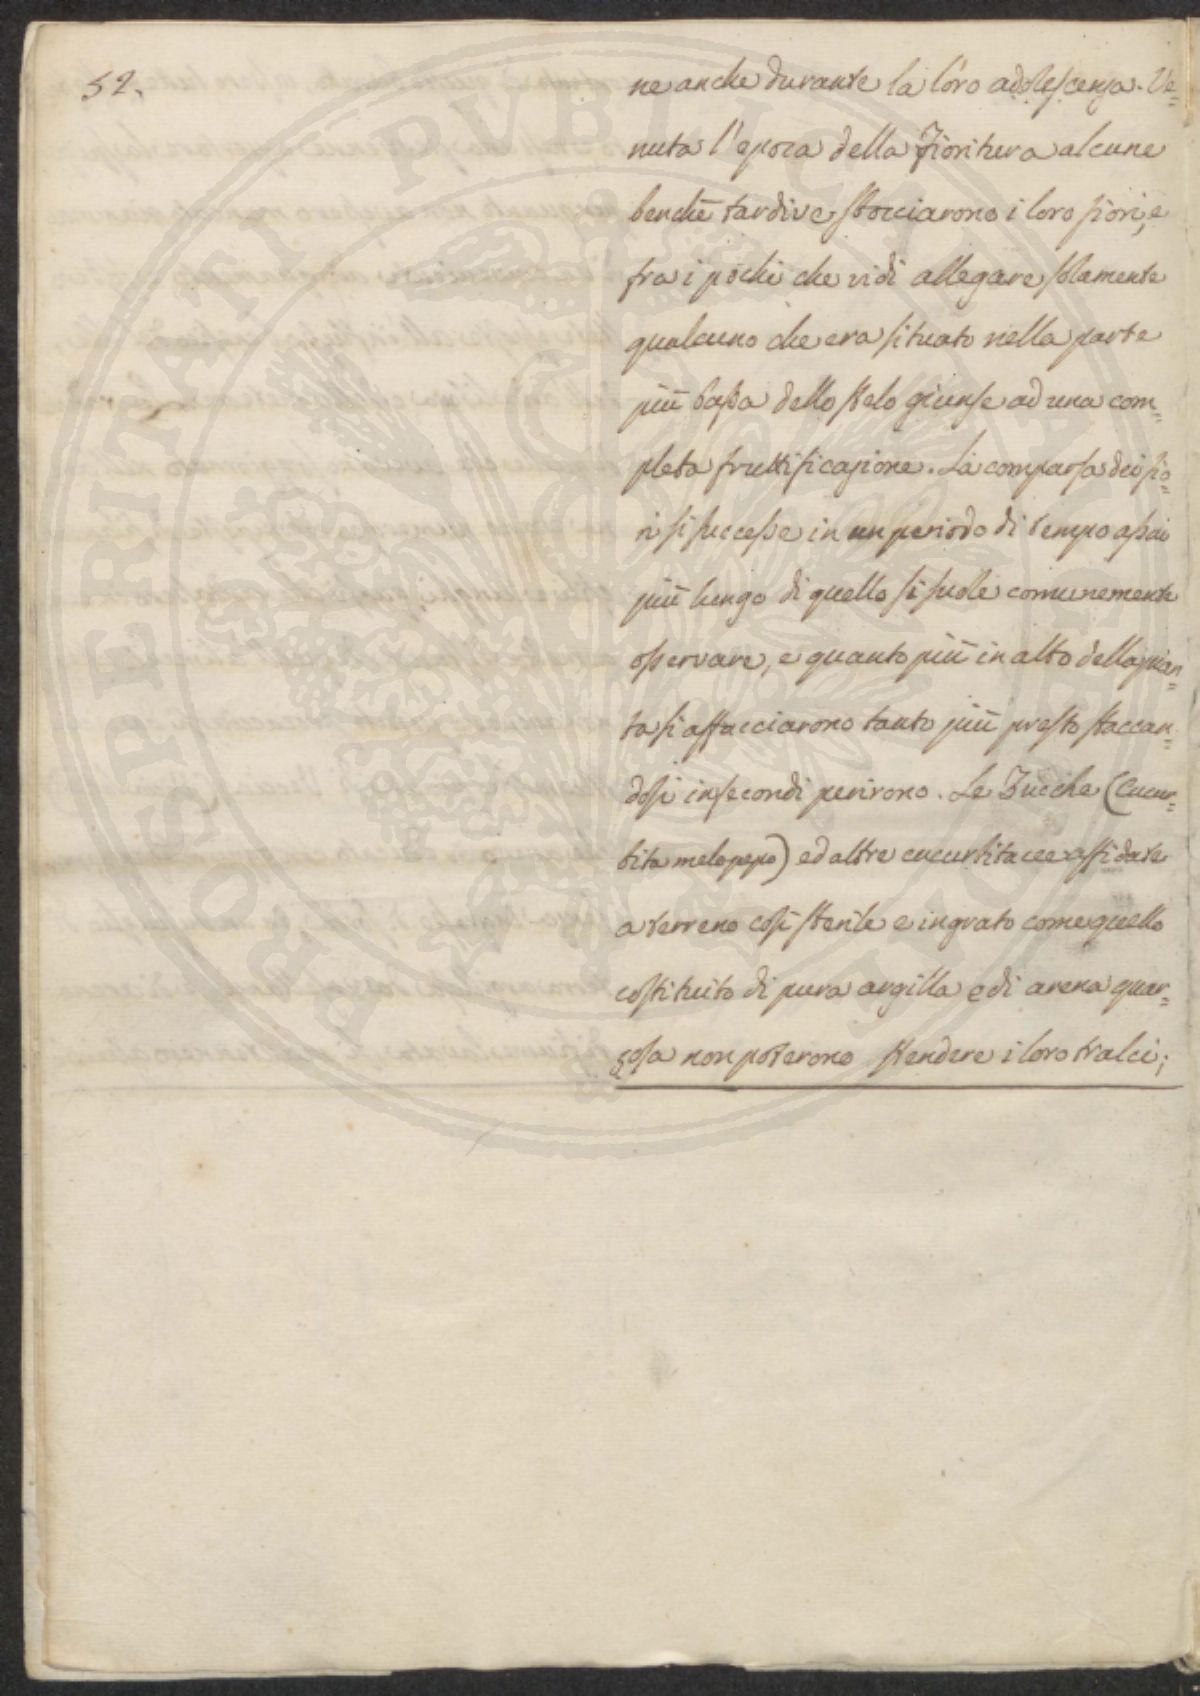 52.
ne anche durante la loro adolescenza. Ve=
nuta l'epoca della Fioritura alcune
benchè tardive sbocciarono i loro fiori, e
fra i pochi che vidi allegare solamente
qualcuno che era situato nella parte
più bassa dello stelo giunse ad una com=
pleta fruttificazione. La comparsa dei fio=
ri si successe in un periodo di tempo assai
più lungo di quello si suole comunemente
osservare, e quanto più in alto della pian=
ta si affacciarono tanto più presto staccan=
dosi infecondi perirono. Le Zucche (Cucur=
bita melopepo) ed altre cucurbitacee affidate
a terreno così sterile e ingrato come quello
costituito di pura argilla e di arena quar=
zosa non poterono stendere i loro tralci;
PROSPERITATI PUBLICAE